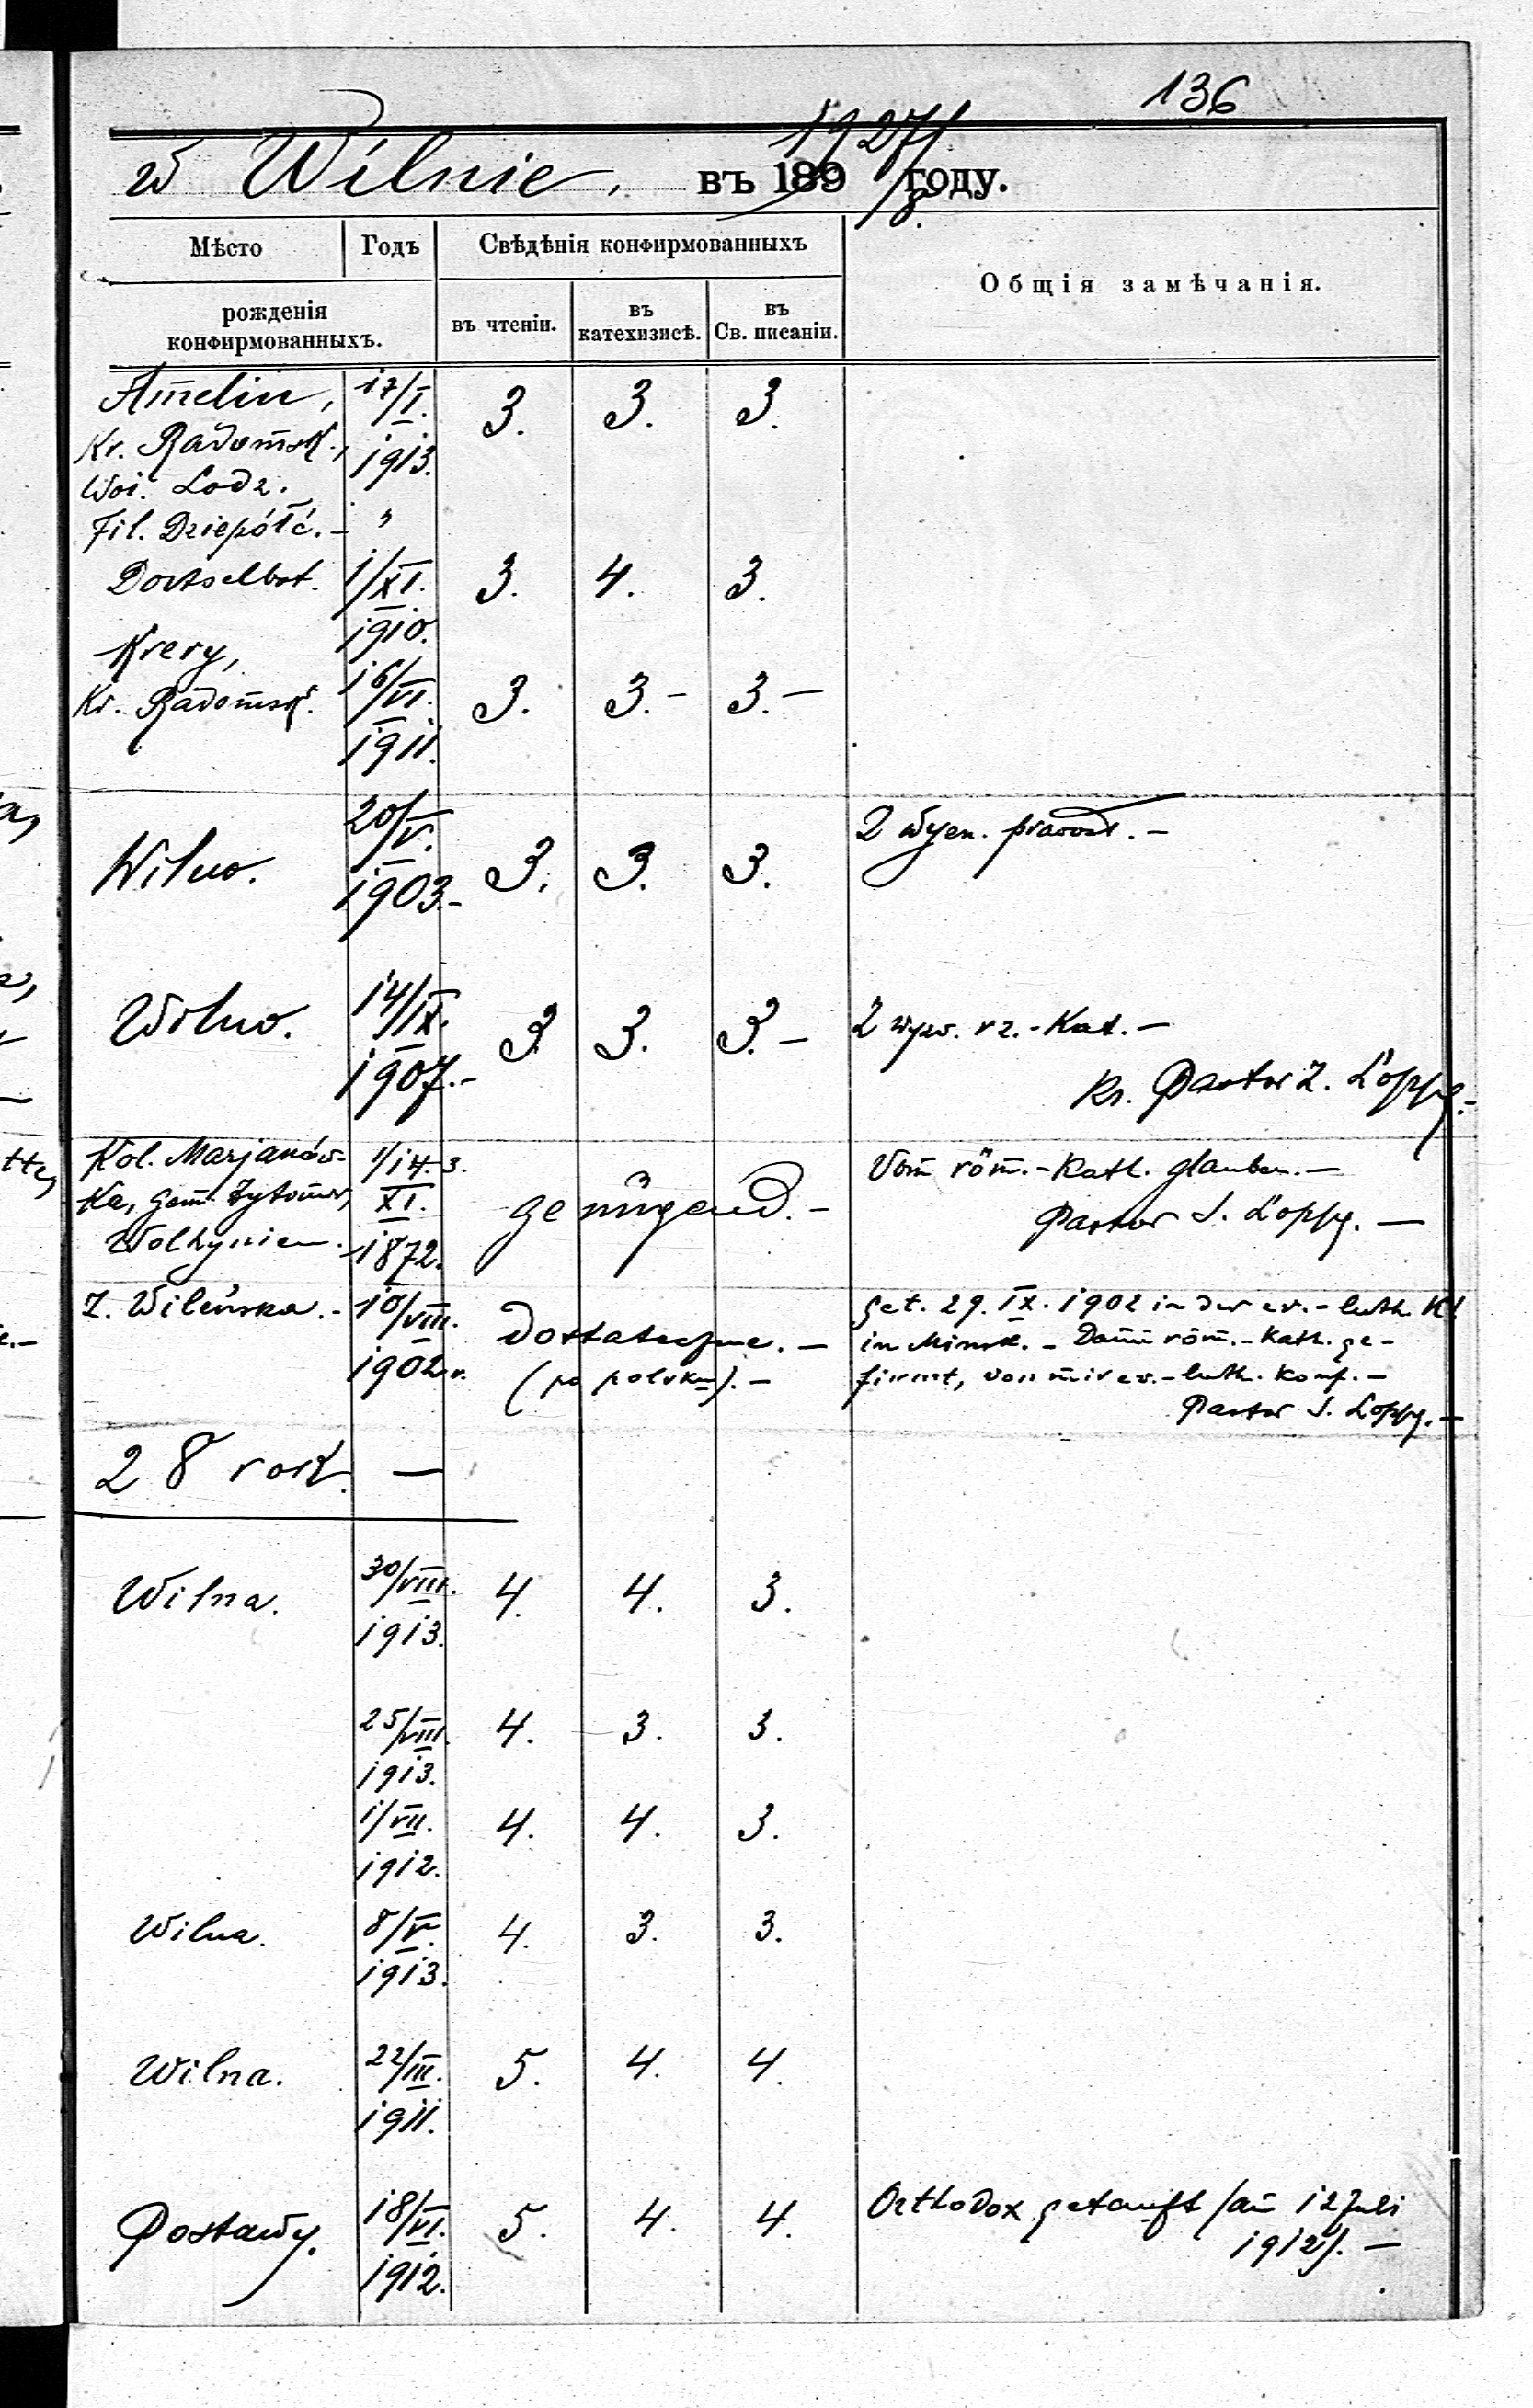 136
w Wilnie, въ 189 1927/8. году.
Мѣсто Годъ Свѣдѣнія конфирмованныхъ Общія замѣчанія.
рожденія конфирмованныхъ. въ чтеніи. въ катехизисѣ. въ Св. писаніи.
Amelin, 17/I. 3. 3. 3.
Kr. Radomsk., 1913.
Woi. Lodz.
Fil. Dziepółć. - "
Dortselbst. 1/XI. 3. 4. 3.
1910.
Krery, 16/VI. 3. 3.- 3.-
Kr. Radomsk. 1911.
20/V. Z wyzn. prawosł. -
Wilno. 1903.- 3. 3. 3.
14/IX.
Wilno. 1907.- 3 3. 3.- Z wyzn. rz.-Kat. -
Ks. Pastor Z. Loppe.-
Kol. Marjanów- 1/14. Vom röm.-Kath. Glauben. -
ka, Gem. Zytomir, XI. genügend. - Pastor S. Loppe. -
Wolhynien. 1872.
Z. Wileńska. - 10/VIII. Dostatecznie. - get. 29. IX. 1902 in der ev.-luth. K.
1902 r. (po polsku). - in Minsk. - Dann röm.-Kath. ge-
firmt, von mir ev.-luth. Konf. -
Pastor S. Loppe. -
28 rok. -
Wilna. 30/VIII. 4. 4. 3.
1913.
25/VIII. 4. 3. 3.
1913.
1/VII. 4. 4. 3.
1912.
Wilna. 8/V. 4. 3. 3.
1913.
Wilna. 22/III. 5. 4. 4.
1911.
Postawy. 18/VI. 5. 4. 4. Orthodox getauft /am 12 Juli
1912. 1912/. -